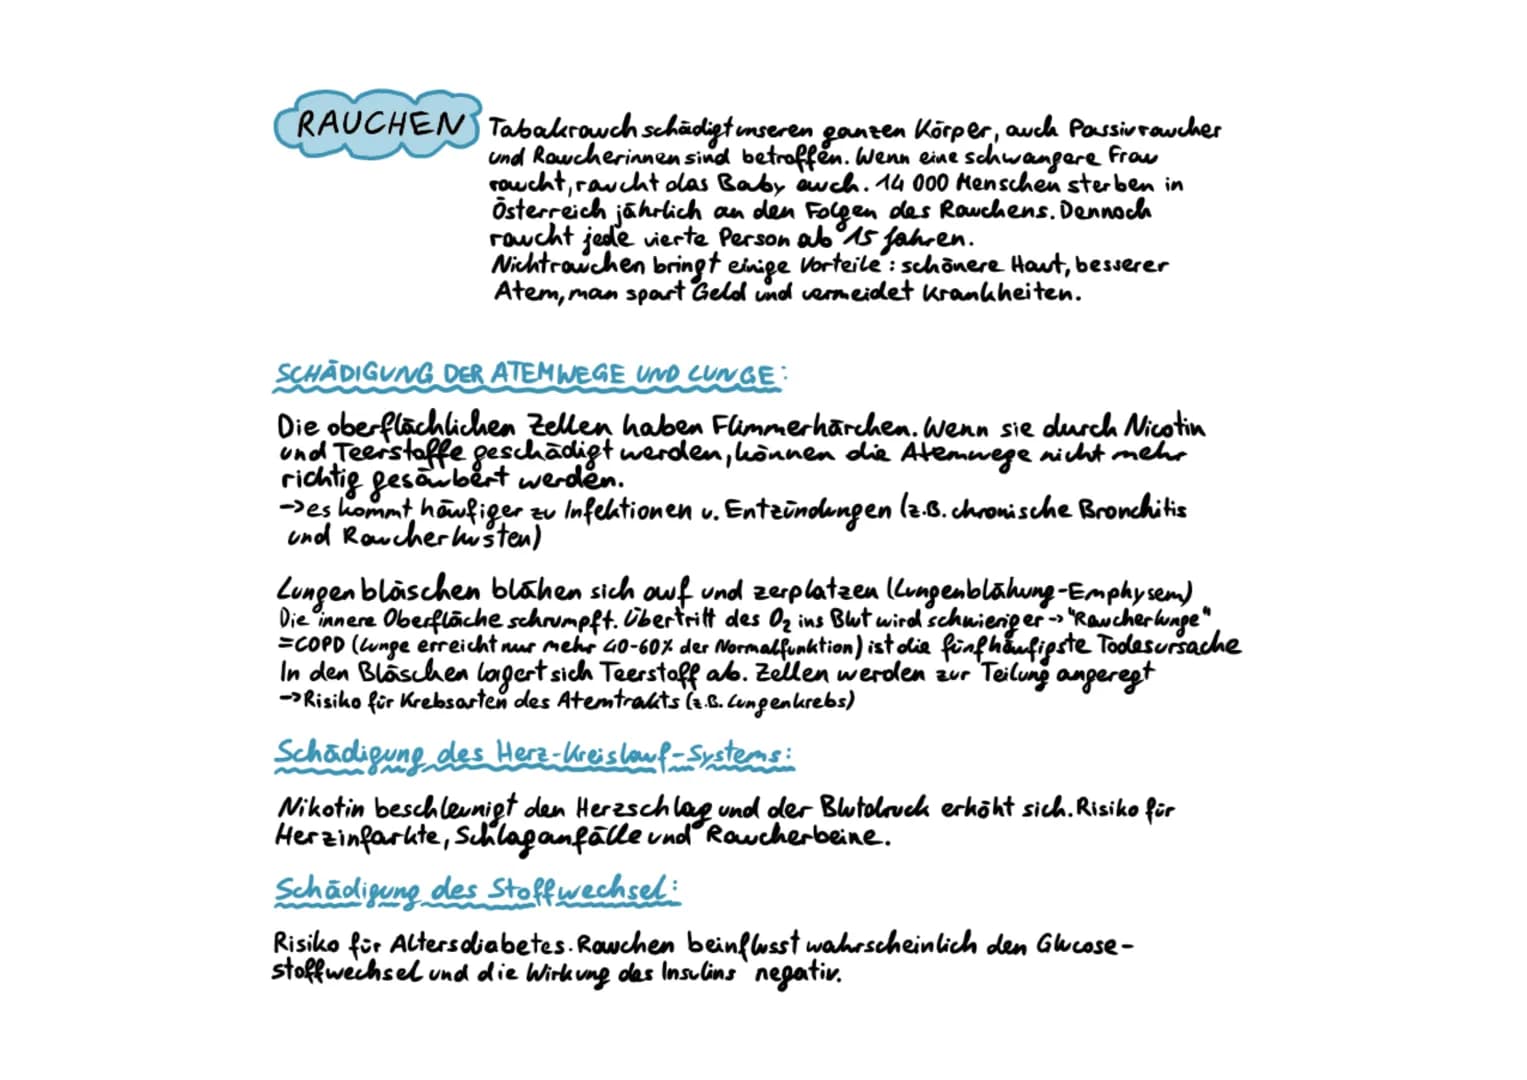 RAUCHEN
Tabakrauch schädigt unseren ganzen Körper, auch Passivraucher
und Raucherinnen sind betroffen. Wenn eine schwangere Frau
raucht, raucht das Baby auch. 14 000 Menschen sterben in
Österreich jährlich an den Folgen des Rauchens. Dennoch
raucht jede vierte Person ab 15 Jahren.
Nichtrauchen bringt einige Vorteile : schönere Haut, besserer
Atem, man spart Geld und vermeidet Krankheiten.
SCHÄDIGUNG DER ATEMWEGE UND LUNGE:
Die oberflächlichen Zellen haben Flimmerhärchen. Wenn sie durch Nicotin
und Teerstoffe geschädigt werden, können die Atemwege nicht mehr
richtig gesäubert werden.
->es kommt häufiger zu Infektionen u. Entzündungen (z.B. chronische Bronchitis
und Raucherhusten)
Lungenbläschen blähen sich auf und zerplatzen (Lungenblähung-Emphysem)
Die innere Oberfläche schrumpft. Übertritt des O₂ ins Blut wird schwieriger -> "Raucherlunge"
=COPD (Lunge erreicht nur mehr 40-60% der Normalfunktion) ist die fünfhäufigste Todesursache
In den Bläschen lagert sich Teerstoff ab. Zellen werden zur Teilung angeregt
->Risiko für Krebsarten des Atemtrakts (z.B. Lungenkrebs)
Schädigung des Herz-Kreislauf-Systems:
Nikotin beschleunigt den Herzschlag und der Blutdruck erhöht sich. Risiko für
Herzinfarkte, Schlaganfälle und Raucherbeine.
Schädigung des Stoffwechsel:
Risiko für Altersdiabetes. Rauchen beinflusst wahrscheinlich den Glucose-
stoffwechsel und die Wirkung des Insulins negativ.